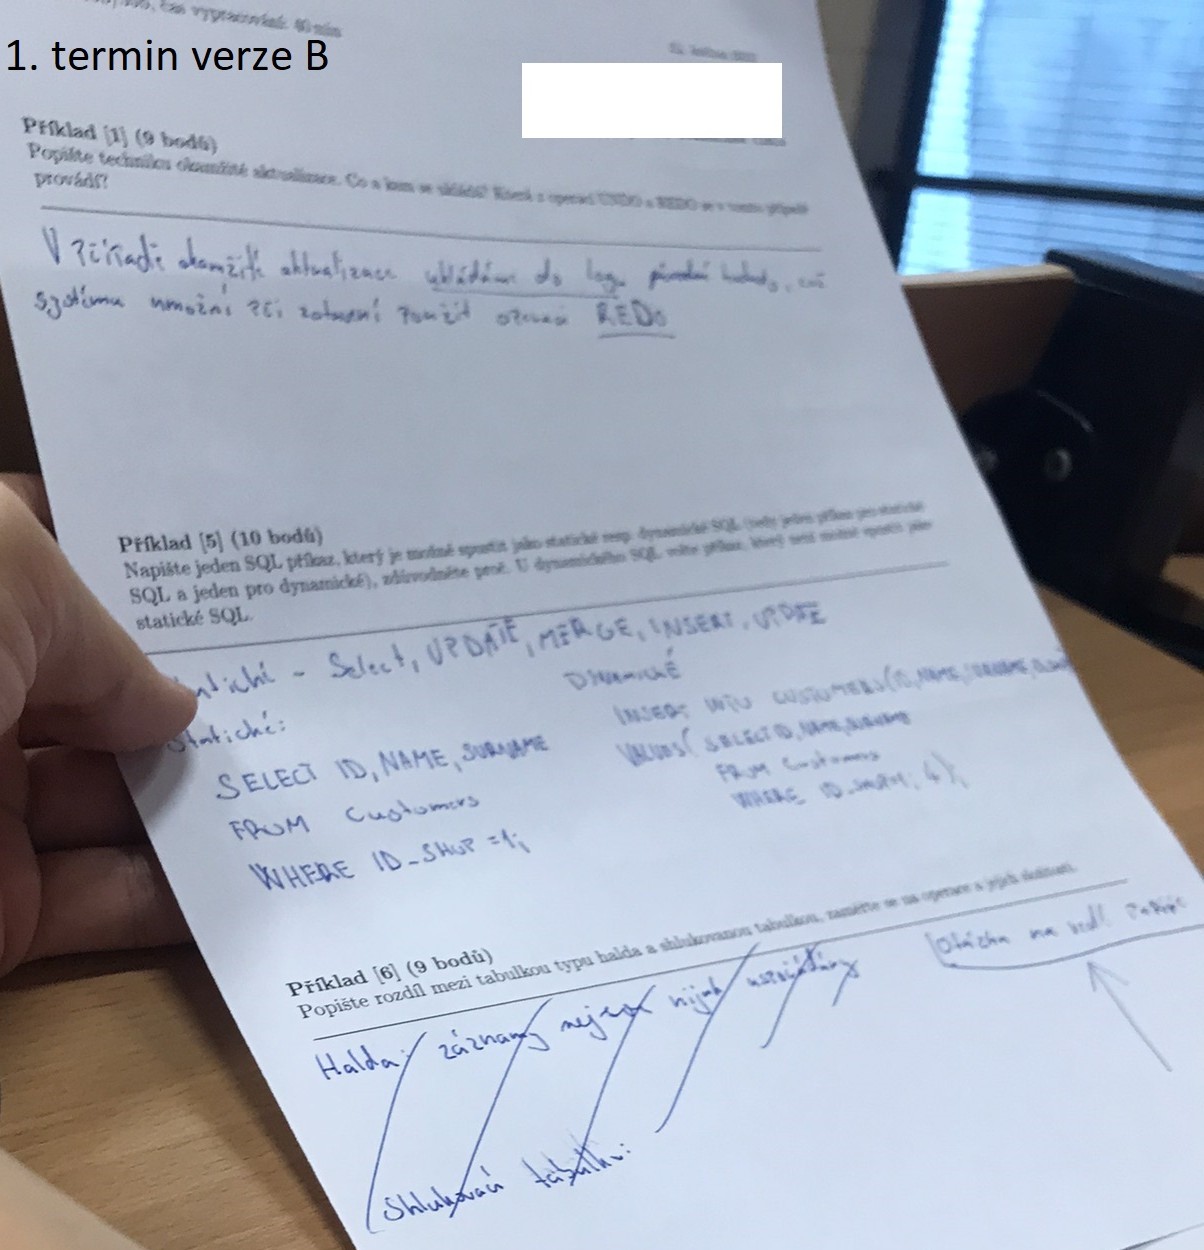 čas vypracování: 40 min
1. termin verze B
Příklad [1] (9 bodů)
Popište techniku okamžité aktualizace. Co a kam se ukládá? Která z operací UNDO a REDO se v tomto případě
provádí?
V případě okamžité aktualizace ukládáme do logu původní hodnoty,
systému umožní při zotavení použít operaci REDO
Příklad [5] (10 bodů)
Napište jeden SQL příkaz, který je možné spustit jako statické resp. dynamické SQL (tedy jeden příkaz pro statické
SQL a jeden pro dynamické), zdůvodněte proč. U dynamického SQL volte příkaz, který není možné spustit jako
statické SQL.
- Select, UPDATE, MERGE, INSERT, UPDATE
DYNAMICKÉ
Statické:
INSERT INTO CUSTOMERS(ID, NAME, SURNAME,
SELECT ID, NAME, SURNAME
VALUES( SELECT ID, NAME, SURNAME
FROM Customers
FROM Customers
WHERE ID_SHOP = 1;
WHERE
Příklad [6] (9 bodů)
Popište rozdíl mezi tabulkou typu halda a shlukovanou tabulkou, zaměřte se na operace a jejich složitosti.
Otázka na
Halda: záznamy nejsou nijak uspořádány
Shlukovaná tabulka: